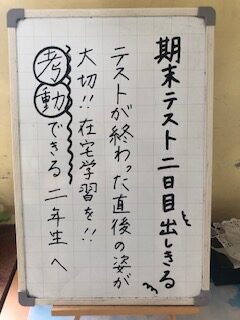 期末テスト二日目出しきる
テストが終わった直後の姿が
大切!!在宅学習を!!
考動できる二年生へ